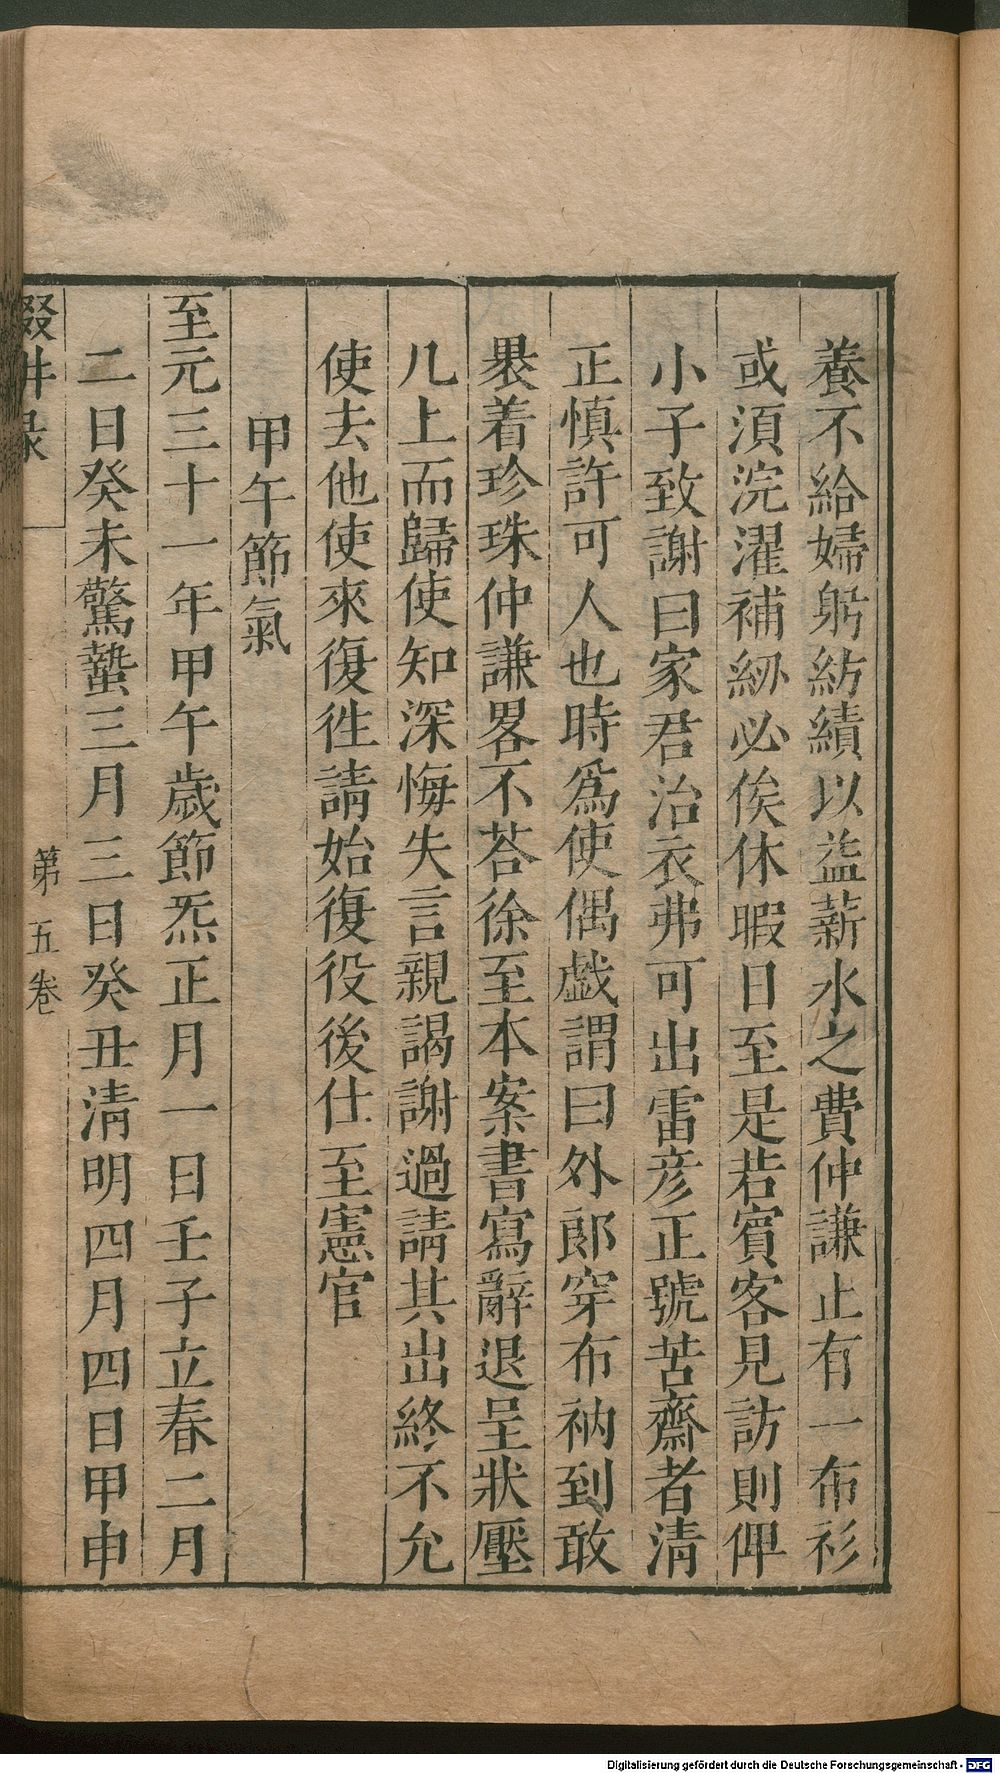 養不給婦躬紡績以益薪水之費仲謙止有一布衫
或須浣濯補紉必俟休暇日至是若賓客見訪則俾
小子致謝曰家君治衣弗可出雷彦正號苦齋者清
正慎許可人也時爲使偶戲謂曰外郎穿布衲到敢
褁着珍珠仲謙畧不荅徐至本案書寫辭退呈狀壓
几上而歸使知深悔失言親謁謝過請其出終不允
使去他使來復徃請始復役後仕至憲官
甲午節氣
至元三十一年甲午歲節炁正月一日壬子立春二月
二日癸未驚蟄三月三日癸丑清明四月四日甲申
第五卷
Digitalisierung gefördert durch die Deutsche Forschungsgemeinschaft - DFG